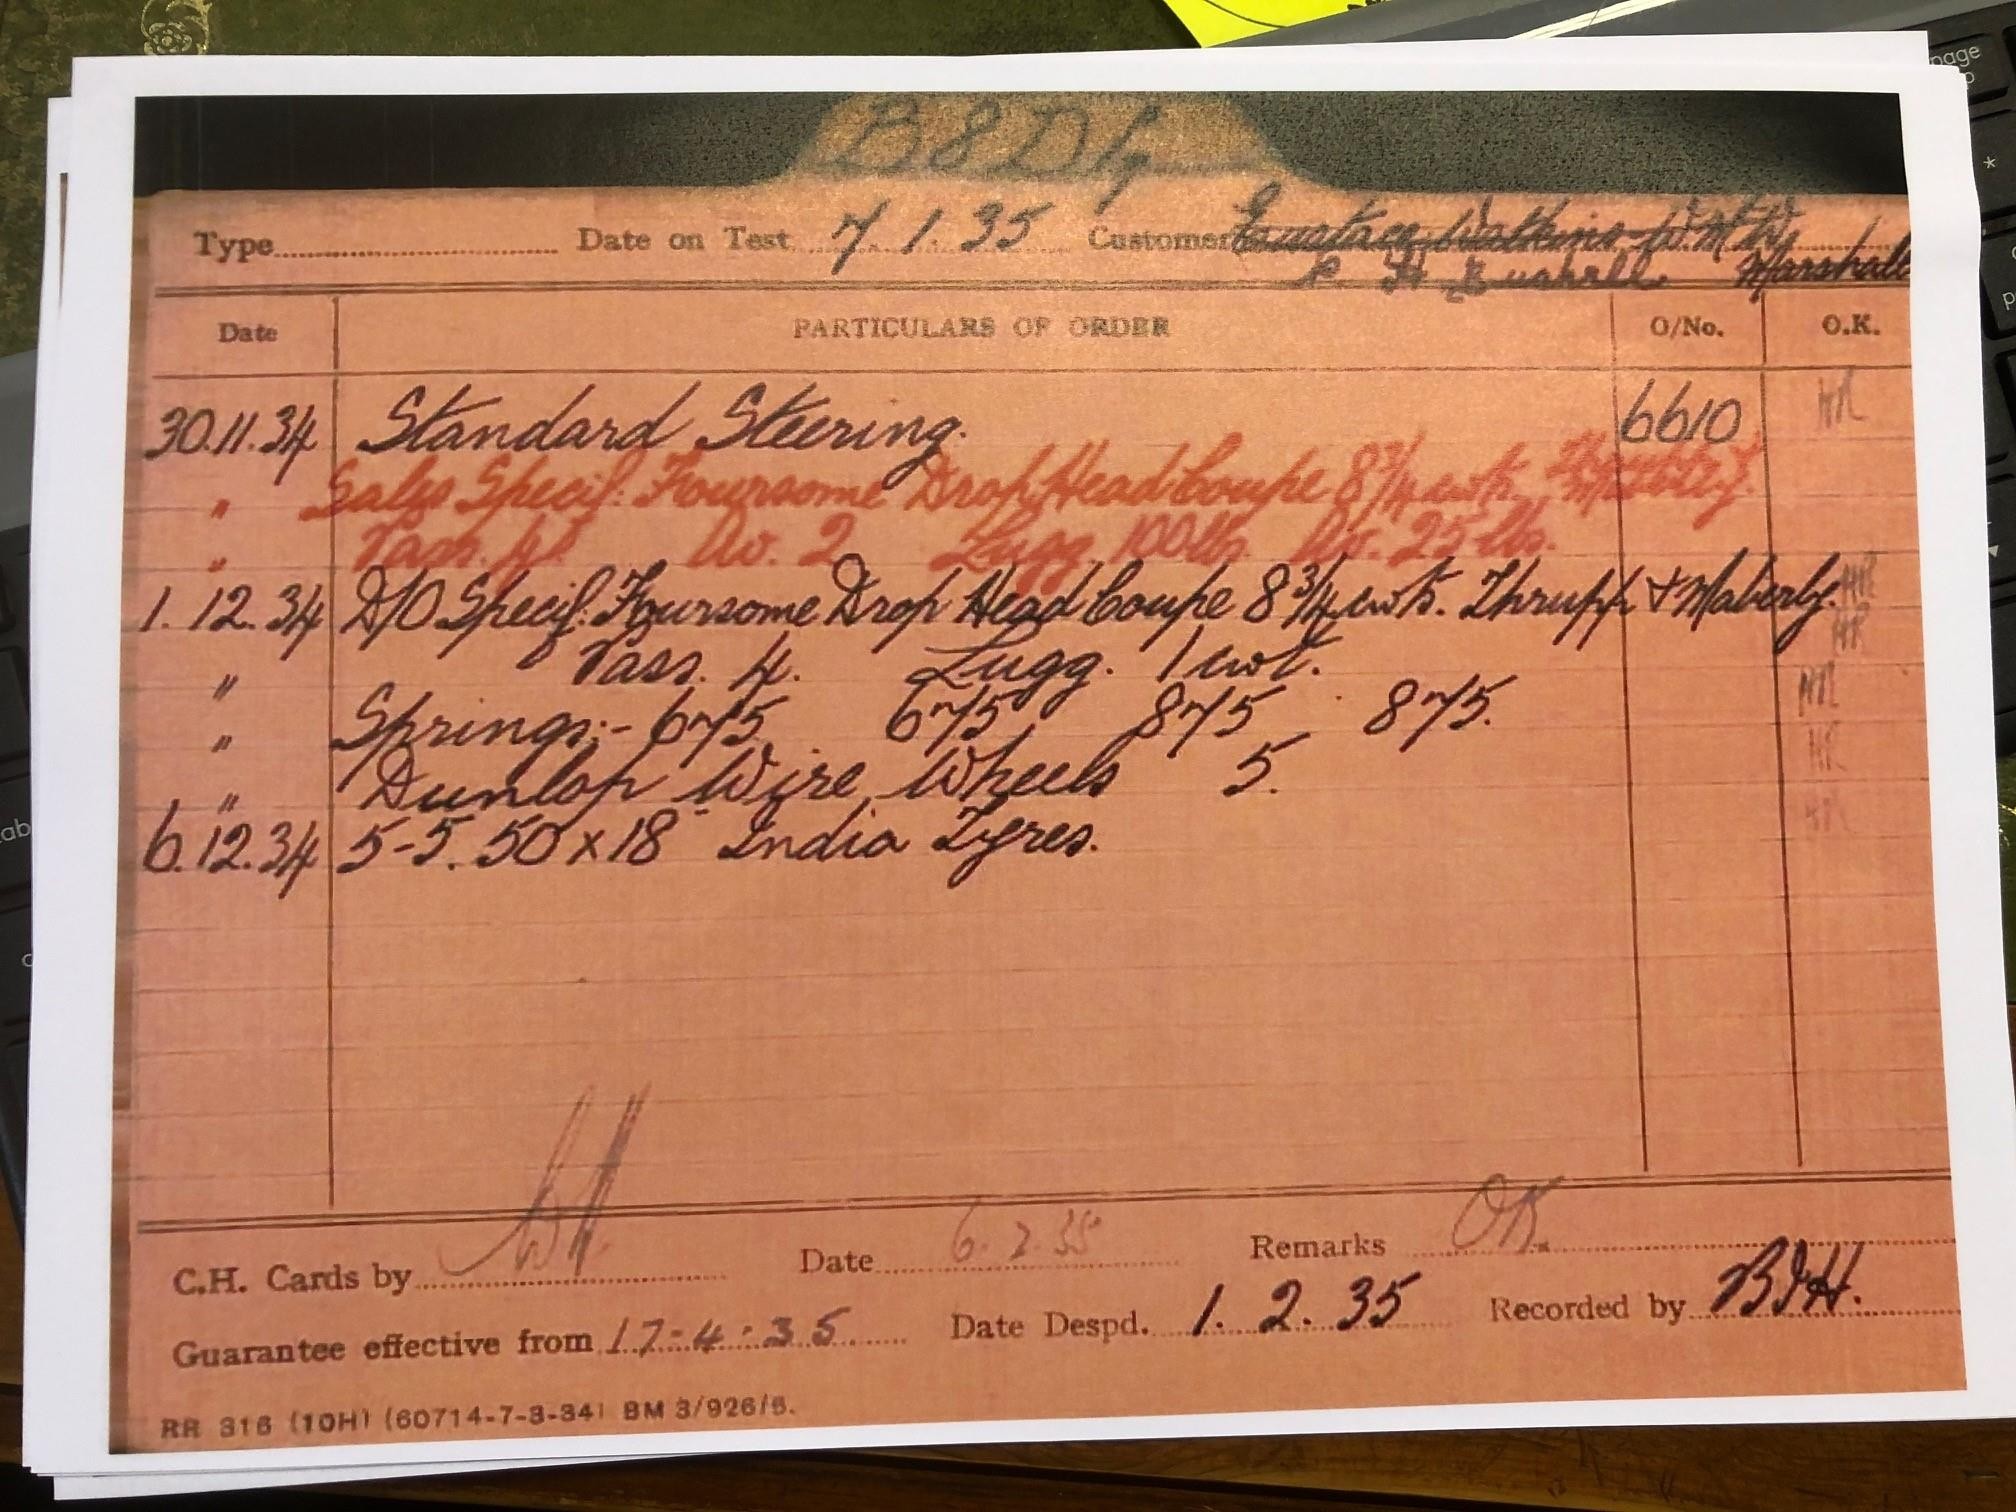 Type Date on Test 7.1.35 Customer Eustace Watkins
Marshall
Date PARTICULARS OF ORDER O/No. O.K.
30.11.34 Standard Steering. 6610 HR
" Sales Specif: Foursome Drop Head Coupe 8 3/4 cwts.
" Pass. 4 Av. 2 Lugg. 100 lbs. Av. 25 lbs.
1.12.34 D/O Specif: Foursome Drop Head Coupe 8 3/4 cwts. Thrupp & Maberly. HR
" Pass. 4. Lugg. 1 cwt. HR
" Springs:- 675 675 875 875. HR
" Dunlop Wire Wheels 5. HR
6.12.34 5-5.50 x 18" India Tyres. HR
C.H. Cards by Date 6.2.35 Remarks OK.
Guarantee effective from 17-4-35 Date Despd. 1.2.35 Recorded by
RR 316 (10H) (60714-7-3-34) BM 3/926/5.
page